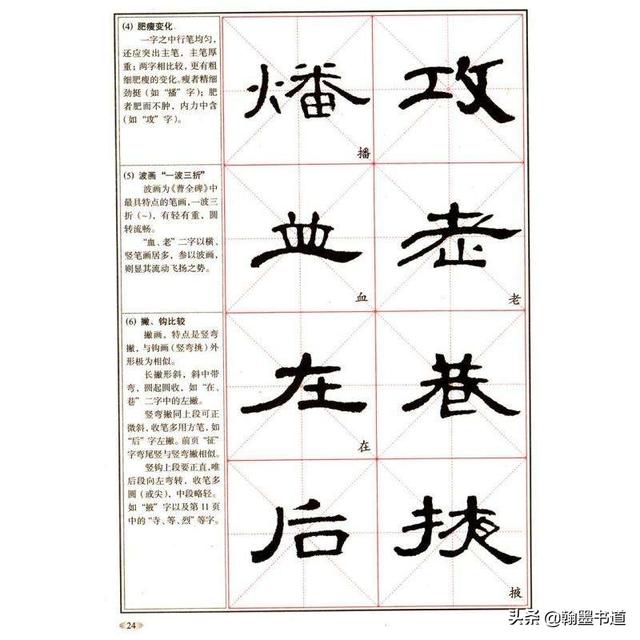 (4) 肥瘦变化
一字之中行笔均匀,
还应突出主笔,主笔厚
重;两字相比较,更有粗
细肥瘦的变化。瘦者精细
劲挺(如“播”字);肥
者肥而不肿,内力中含
(如“攻”字)。
播
攻
播
(5) 波画“一波三折”
波画为《曹全碑》中
最具特点的笔画,一波三
折(~),有轻有重,圆
转流畅。
“血、老”二字以横、
竖笔画居多,参以波画,
则显其流动飞扬之势。
血
老
血
老
(6) 撇、钩比较
撇画,特点是竖弯
撇,与钩画(竖弯挑)外
形极为相似。
长撇形斜,斜中带
弯,圆起圆收,如“在、
巷”二字中的左撇。
竖弯撇同上段可正
微斜,收笔多用方笔,如
“后”字左撇。前页“征”
字弯尾竖与竖弯撇相似。
竖钩上段要正直,唯
后段向左弯转,收笔多
圆(或尖),中段略轻。
如“掖”字以及第11页
中的“寺、等、烈”等字。
在
巷
在
后
掖
掖
24
头条 @翰墨书道